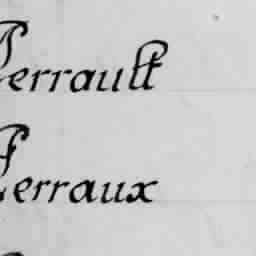 Perrault
Perraux